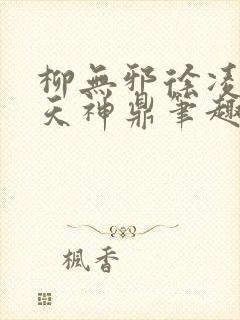 柳無邪徐凌
天神鼎筆趣
楓香